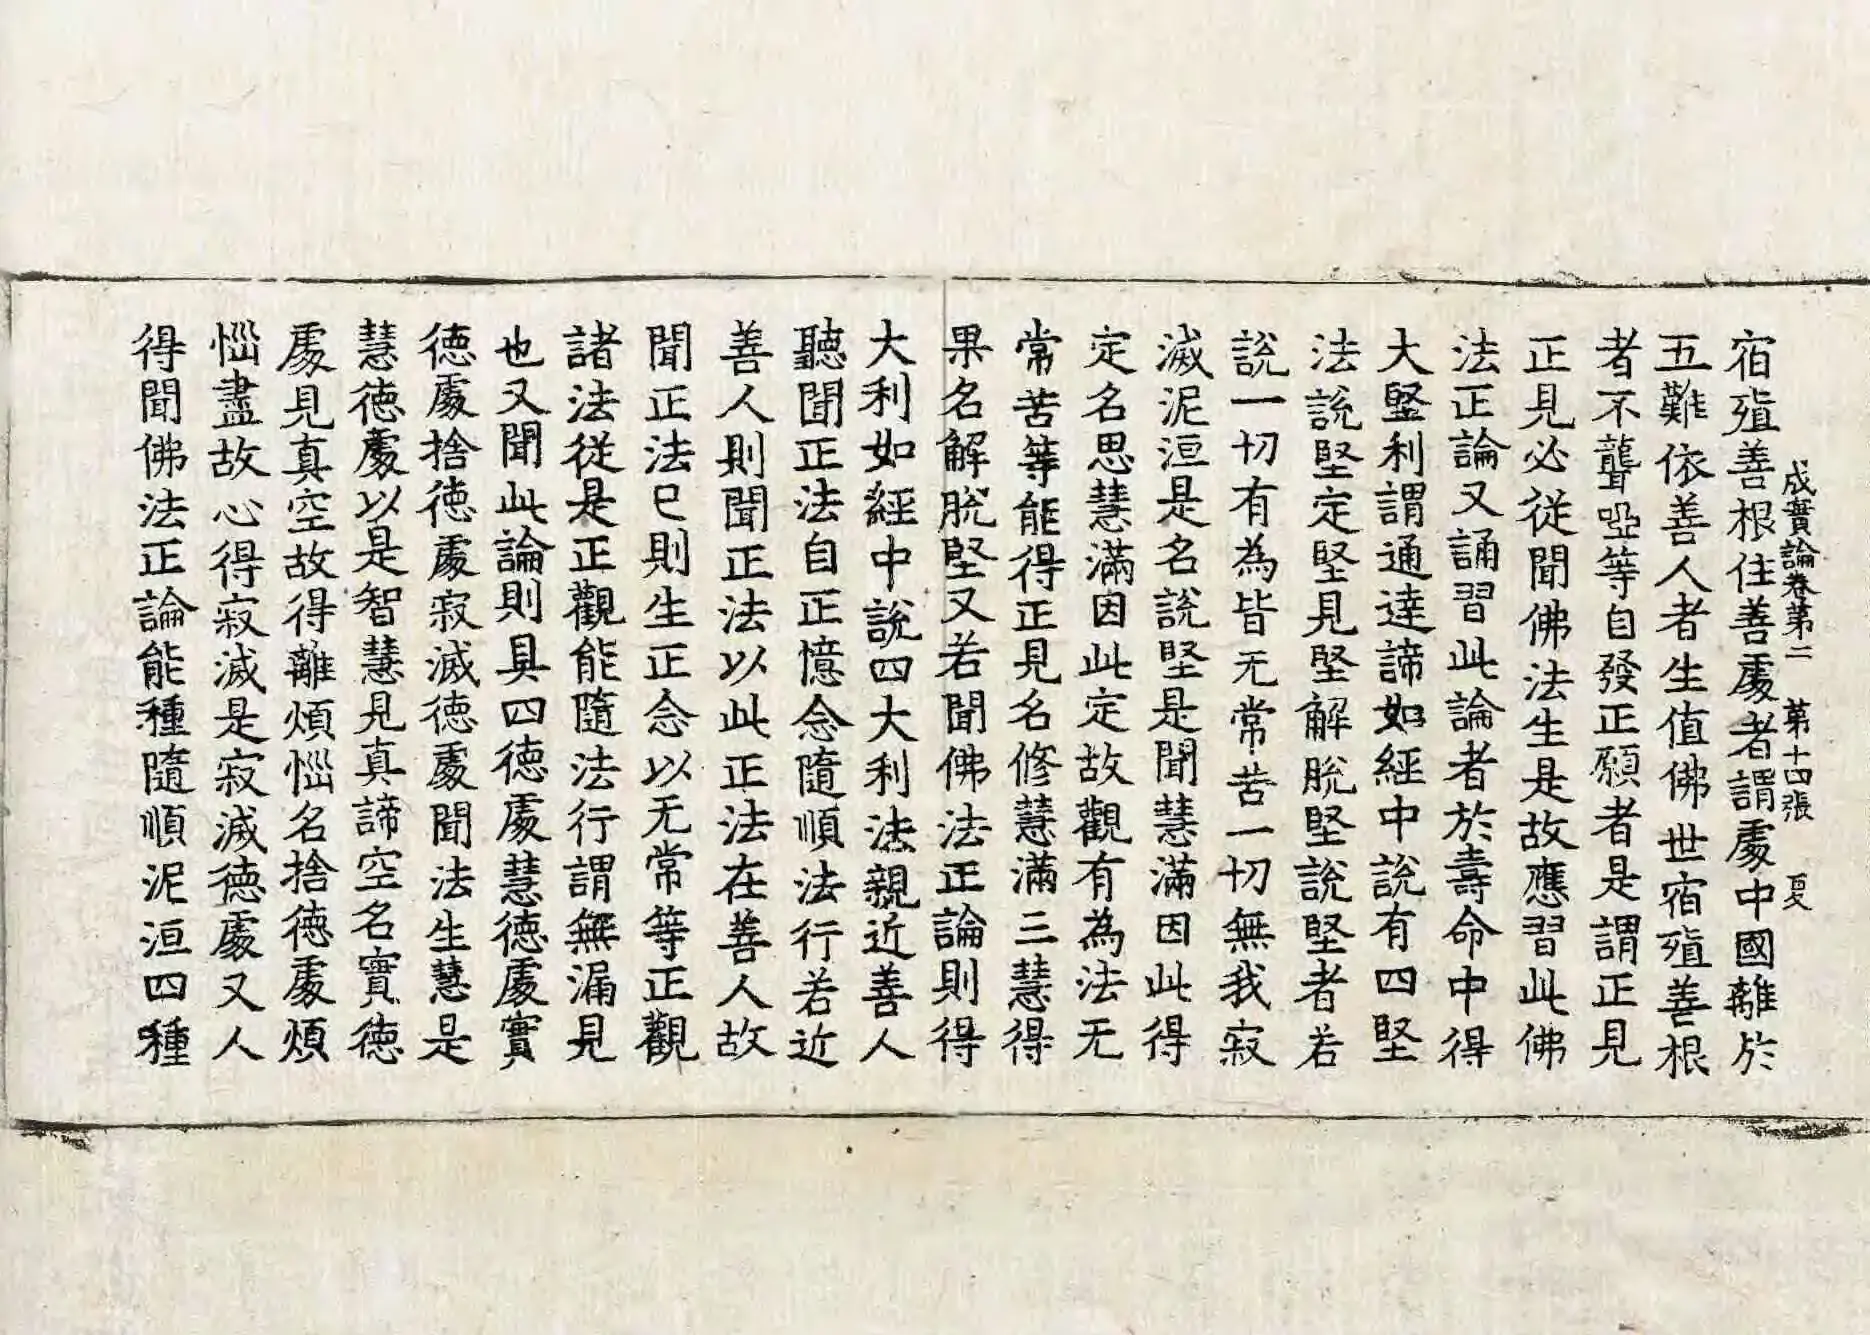 成實論卷第二　第十四張　夏
宿殖善根住善處者謂處中國離於
五難依善人者生值佛世宿殖善根
者不聾啞等自發正願者是謂正見
正見必從聞佛法生是故應習此佛
法正論又誦習此論者於壽命中得
大堅利謂通達諦如經中說有四堅
法說堅定堅見堅解脫堅說堅者若
說一切有為皆无常苦一切無我寂
滅泥洹是名說堅是聞慧滿因此得
定名思慧滿因此定故觀有為法无
常苦等能得正見名修慧滿三慧得
果名解脫堅又若聞佛法正論則得
大利如經中說四大利法親近善人
聽聞正法自正憶念隨順法行若近
善人則聞正法以此正法在善人故
聞正法已則生正念以无常等正觀
諸法從是正觀能隨法行謂無漏見
也又聞此論則具四德處慧德處實
德處捨德處寂滅德處聞法生慧是
慧德處以是智慧見真諦空名實德
處見真空故得離煩惱名捨德處煩
惱盡故心得寂滅是寂滅德處又人
得聞佛法正論能種隨順泥洹四種